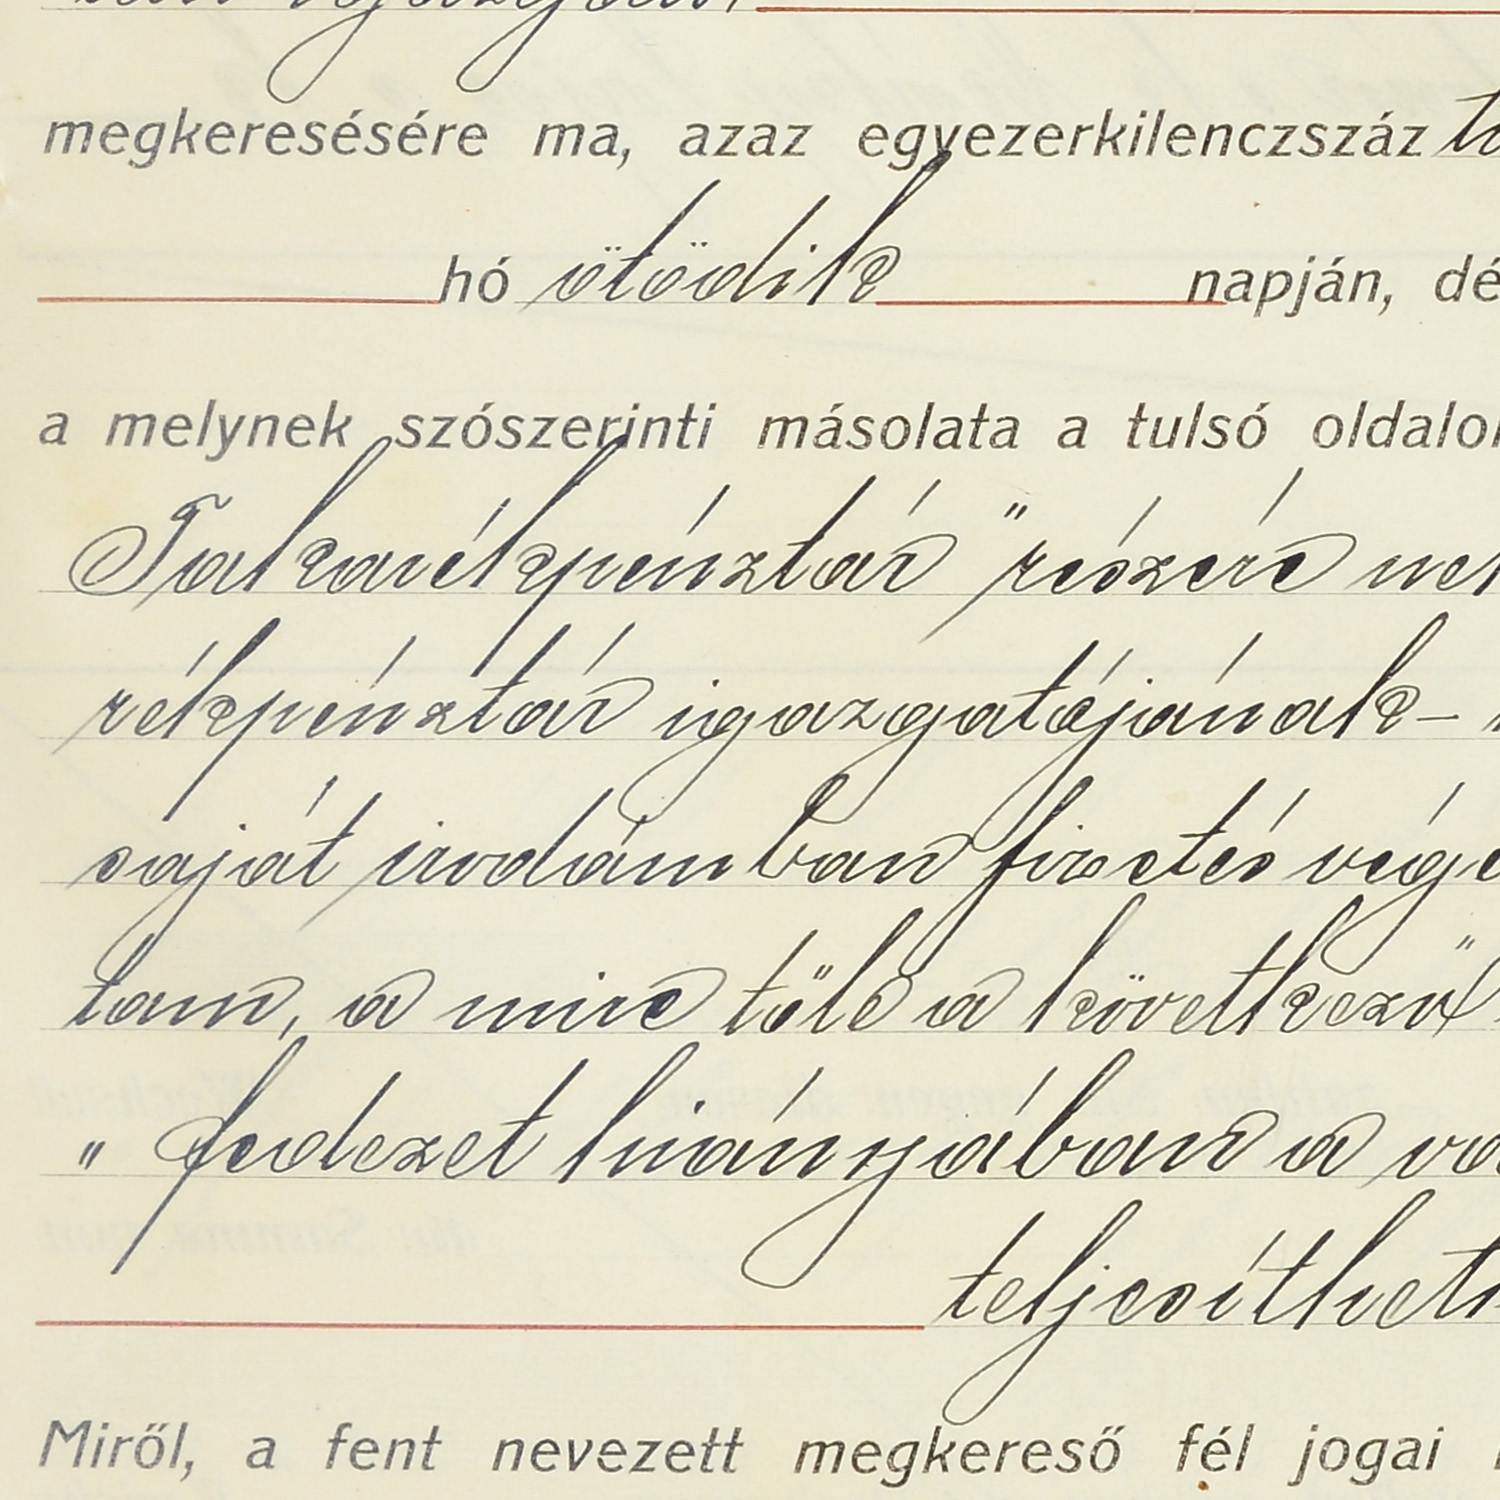 megkeresésére ma, azaz egyezerkilenczszáz
hó ötödik napján, dé
a melynek szószerinti másolata a tulsó oldalon
Takarékpénztár" részére
rékpénztár igazgatójának –
saját irodámban fizetés vége
tam, a mire tőle a következő
" fedezet hiányában a
teljesíthet
Miről, a fent nevezett megkereső fél jogai